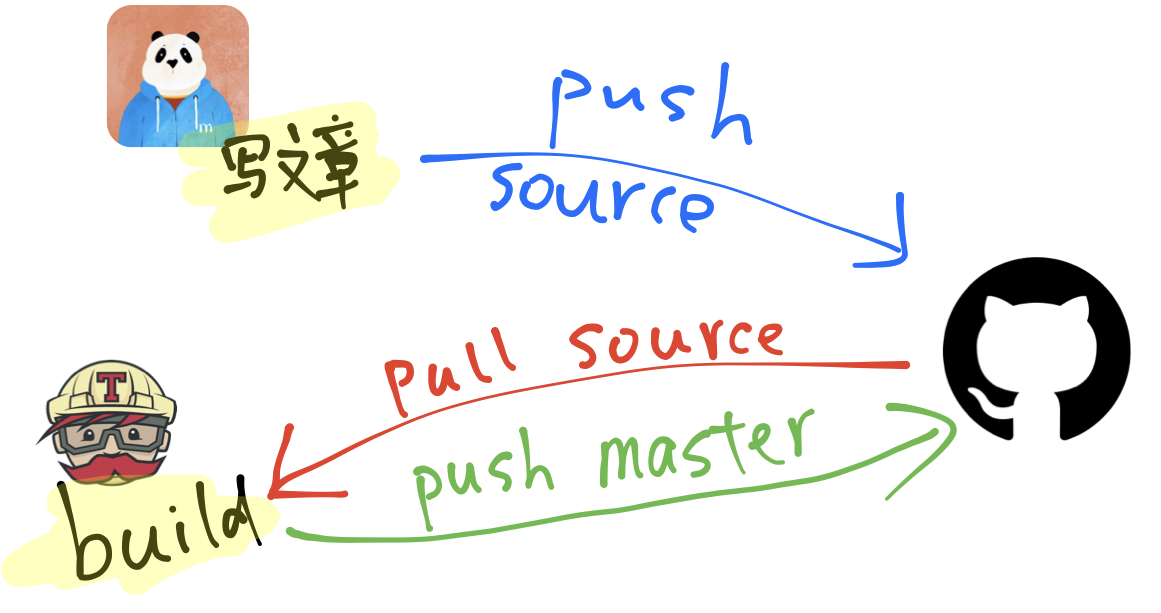 m
写文章
push
source
pull source
push master
T
build